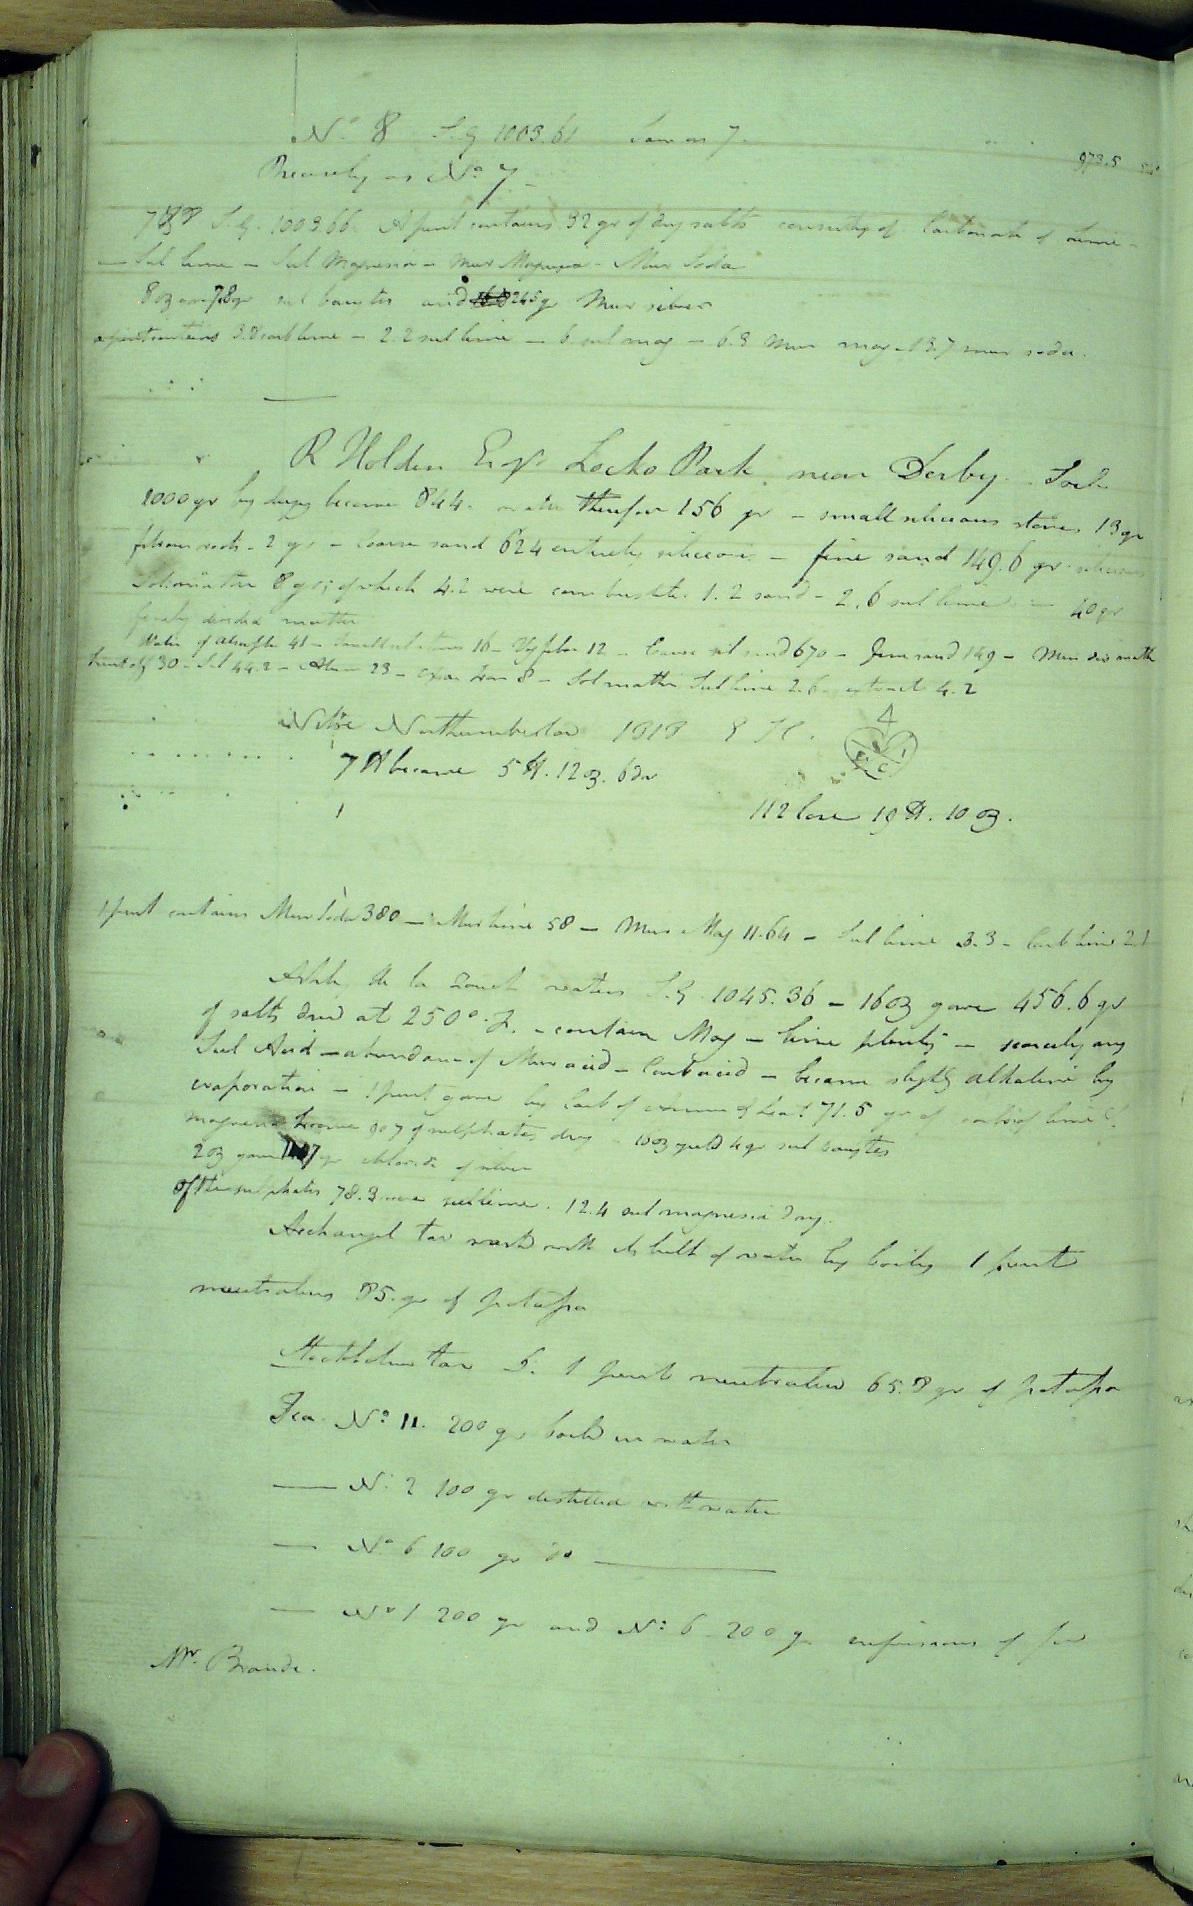 No 8 S.G 1003.61 Same as 7.
973.5
Precisely as No 7 -
7 & 8 S.G. 1003.66. A pint contains 32 gr of dry salts consisting of Carbonate of Lime -
— Sul lime — Sul Magnesia — Mur Magnesia - Mur Soda
8 oz gave 7.8 gr sul barytes and 24.5 gr Mur silver
a pint contains 3.8 carb lime — 2.2 sul lime — 6 sul mag — 6.3 Mur mag - 13.7 mur soda.
R Holden Esqr. Locko Park, near Derby. Soil
1000 gr by drying became 844. water therefore 156 gr — small silicious stones 13 gr
fibrous roots - 2 gr — coarse sand 624 entirely silicious — fine sand 149.6 gr silicious
Sol matter 8 grs; of which 4.2 were combustible. 1.2 sand - 2.6 sul lime — 40 gr
finely divided matter
Water of absorption 41 - small sil stones 16 - Veg fibre 12 — Coarse sil sand 670 — fine sand 149 — Min div matter
30 - Sil 44.2 — Alum 23 — Oxide Iron 8 — Sol matter Sul lime 2.6 extract 4.2
Nitre Northumberland 1818
4
7 lb became 5 lb. 12 oz. 6 dr
112 lose 19 lb. 10 oz.
1 pint contains Mur Soda 380 — Mur lime 58 — Mur Mag 11.64 — Sul lime 3.3 — Carb lime 2.1
Ashby de la Zouch waters S.G. 1045.36 — 16 oz gave 456.6 gr
of salts dried at 250° F. - contain Mag — lime plenty — scarcely any
Sul Acid — abundance of Mur acid — Carb acid — became slightly alkaline by
evaporation — 1 pint gave by Carb of ammonia & heat 71.5 gr of carb of lime &
magnesia became 907 of sulphates dry - 10 oz yield 4 gr sul barytes
2 oz gave gr chloride of silver
Of the sulphates 78.3 were sul lime. 12.4 sul magnesia dry.
Archangel tar washed with its bulk of water by boiling 1 pint
neutralises 85. gr of potassa
Stockholm tar 1 pint neutralised 65.8 gr of potassa
Tea. No 11. 200 gr boiled in water
—— No 2 100 gr distilled with water
— No 6 100 gr do ————
— No 1 200 gr and No 6 200 gr infusions of
Mr. Brande.